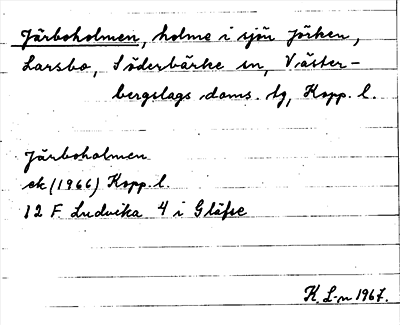 Järboholmen, holme i sjön Jörken,
Larsbo, Söderbärke sn, Väster-
bergslags doms. tg, Kopp. l.
Järboholmen
ek (1966) Kopp. l.
12 F Ludvika 4 i Gläfse
K. L-n 1967.